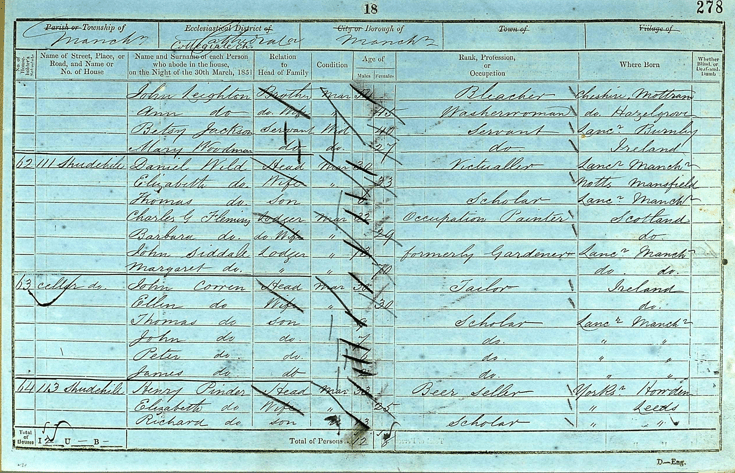 18
278
Parish or Township of Manchr
Ecclesiastical District of Cathedral Collegiate Ch.
City or Borough of Manchr
Town of
Village of
Name of Street, Place, or Road, and Name or No. of House
Name and Surname of each Person who abode in the house, on the Night of the 30th March, 1851
Relation to Head of Family
Condition
Age of
Males Females
Rank, Profession, or Occupation
Where Born
Whether Blind, or Deaf-and-Dumb
John Leighton Brother Mar Bleacher Cheshire, Mottram
Ann do do. Wife 45 Washerwoman do. Hazelgrove
Betsy Jackson Servant Wid Servant Lancr Burnly
Mary Woodman do do. 27 do. Ireland
62 111 Shudehill Daniel Wild Head Mar Victualler Lancr Manchr
Elizabeth do. Wife " 33 Notts Mansfield
Thomas do. Son Scholar Lancr Manchr
Charles G Fleming Lodger Mar Occupation Painter Scotland
Barbara do. do. Wife " 29 do
John Siddall Lodger " formerly Gardener Lancr Manchr
Margaret do. " " do do.
63 cellar do. John Cowen Head Mar Tailor Ireland
Ellen do Wife " 30 do.
Thomas do Son Scholar Lancr Manchr
John do do. do. " "
Peter do do. do. " "
James do do. " "
64 113 Shudehill Henry Pinder Head Mar Beer Seller Yorksr Howden
Elizabeth do. Wife " 25 " Leeds
Richard do. Son Scholar " "
Total of Houses I U - B -
Total of Persons 12 8
D—Eng.